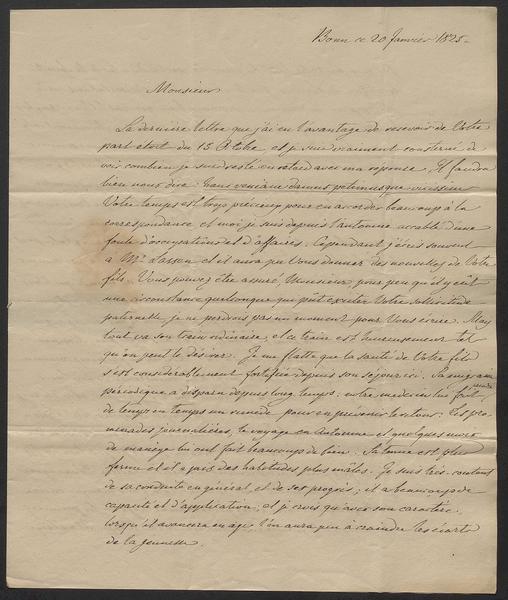 Bonn ce 20 Janvier 1825.
Monsieur
La dernière lettre que j'ai eu l'avantage de recevoir de Votre
part étoit du 15 Octobre et je suis vraiment consterné de
voir combien je suis resté en retard avec ma réponse. Il faudra
bien nous dire: hanc veniam damus petimusque vicissim
Votre temps est trop précieux pour en accorder beaucoup à la
correspondance et moi je suis depuis l'automne accablé d'une
foule d'occupations et d'affaires. Cependant j'écris souvent
à Mr. Lassen et il aura pu Vous donner des nouvelles de Votre
fils. Vous pouvez être assuré, Monsieur pour peu qu'il y eût
une circonstance quelconque qui pût exciter Votre sollicitude
paternelle je ne perdrois pas un moment pour Vous écrire. Mais
tout va son train ordinaire, et ce train est heureusement tel
qu'on peut le désirer. Je me flatte que la santé de Votre fils
s'est considérablement fortifiée depuis son séjour ici. Sa migraine
périodique a disparu depuis long temps; notre médecin lui fait
de temps en temps un remède pour en prévenir le retour. Les pro-
menades journalières, le voyage en Automne et quelques mois
de manège lui ont fait beaucoup de bien. Sa tenue est plus
ferme et il a pris des habitudes plus mâles. Je suis très-content
de sa conduite en général, et de ses progrès; il a beaucoup de
capacité et d'application, et je crois qu'avec son caractère,
lorsqu'il avancera en âge, l'on aura peu à craindre les écarts
de la jeunesse.